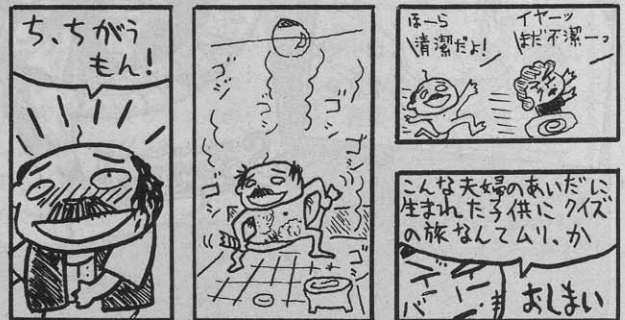 ち、ちがう
もん!
ゴシ
ゴシ
ゴシ
ゴシ
ゴシ
ゴシ
ほーら
清潔だよ!
イヤーッ
まだ不潔ーっ
こんな夫婦のあいだに
生まれた子供にクイズ
の旅なんてムリ、か
おしまい